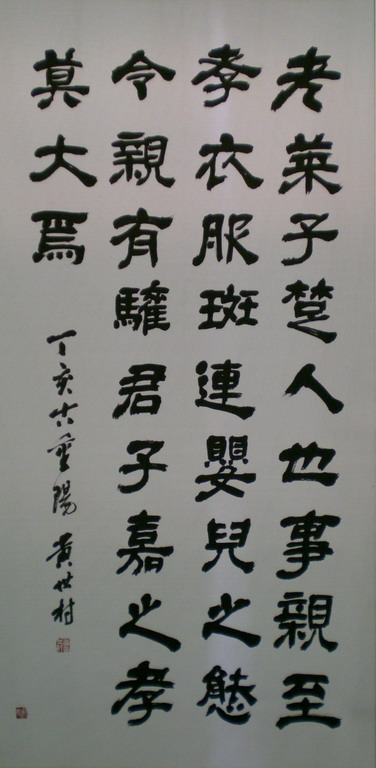 老萊子楚人也事親至
孝衣服斑連嬰兒之態
令親有驩君子嘉之孝
莫大焉
丁亥重陽 黃世村